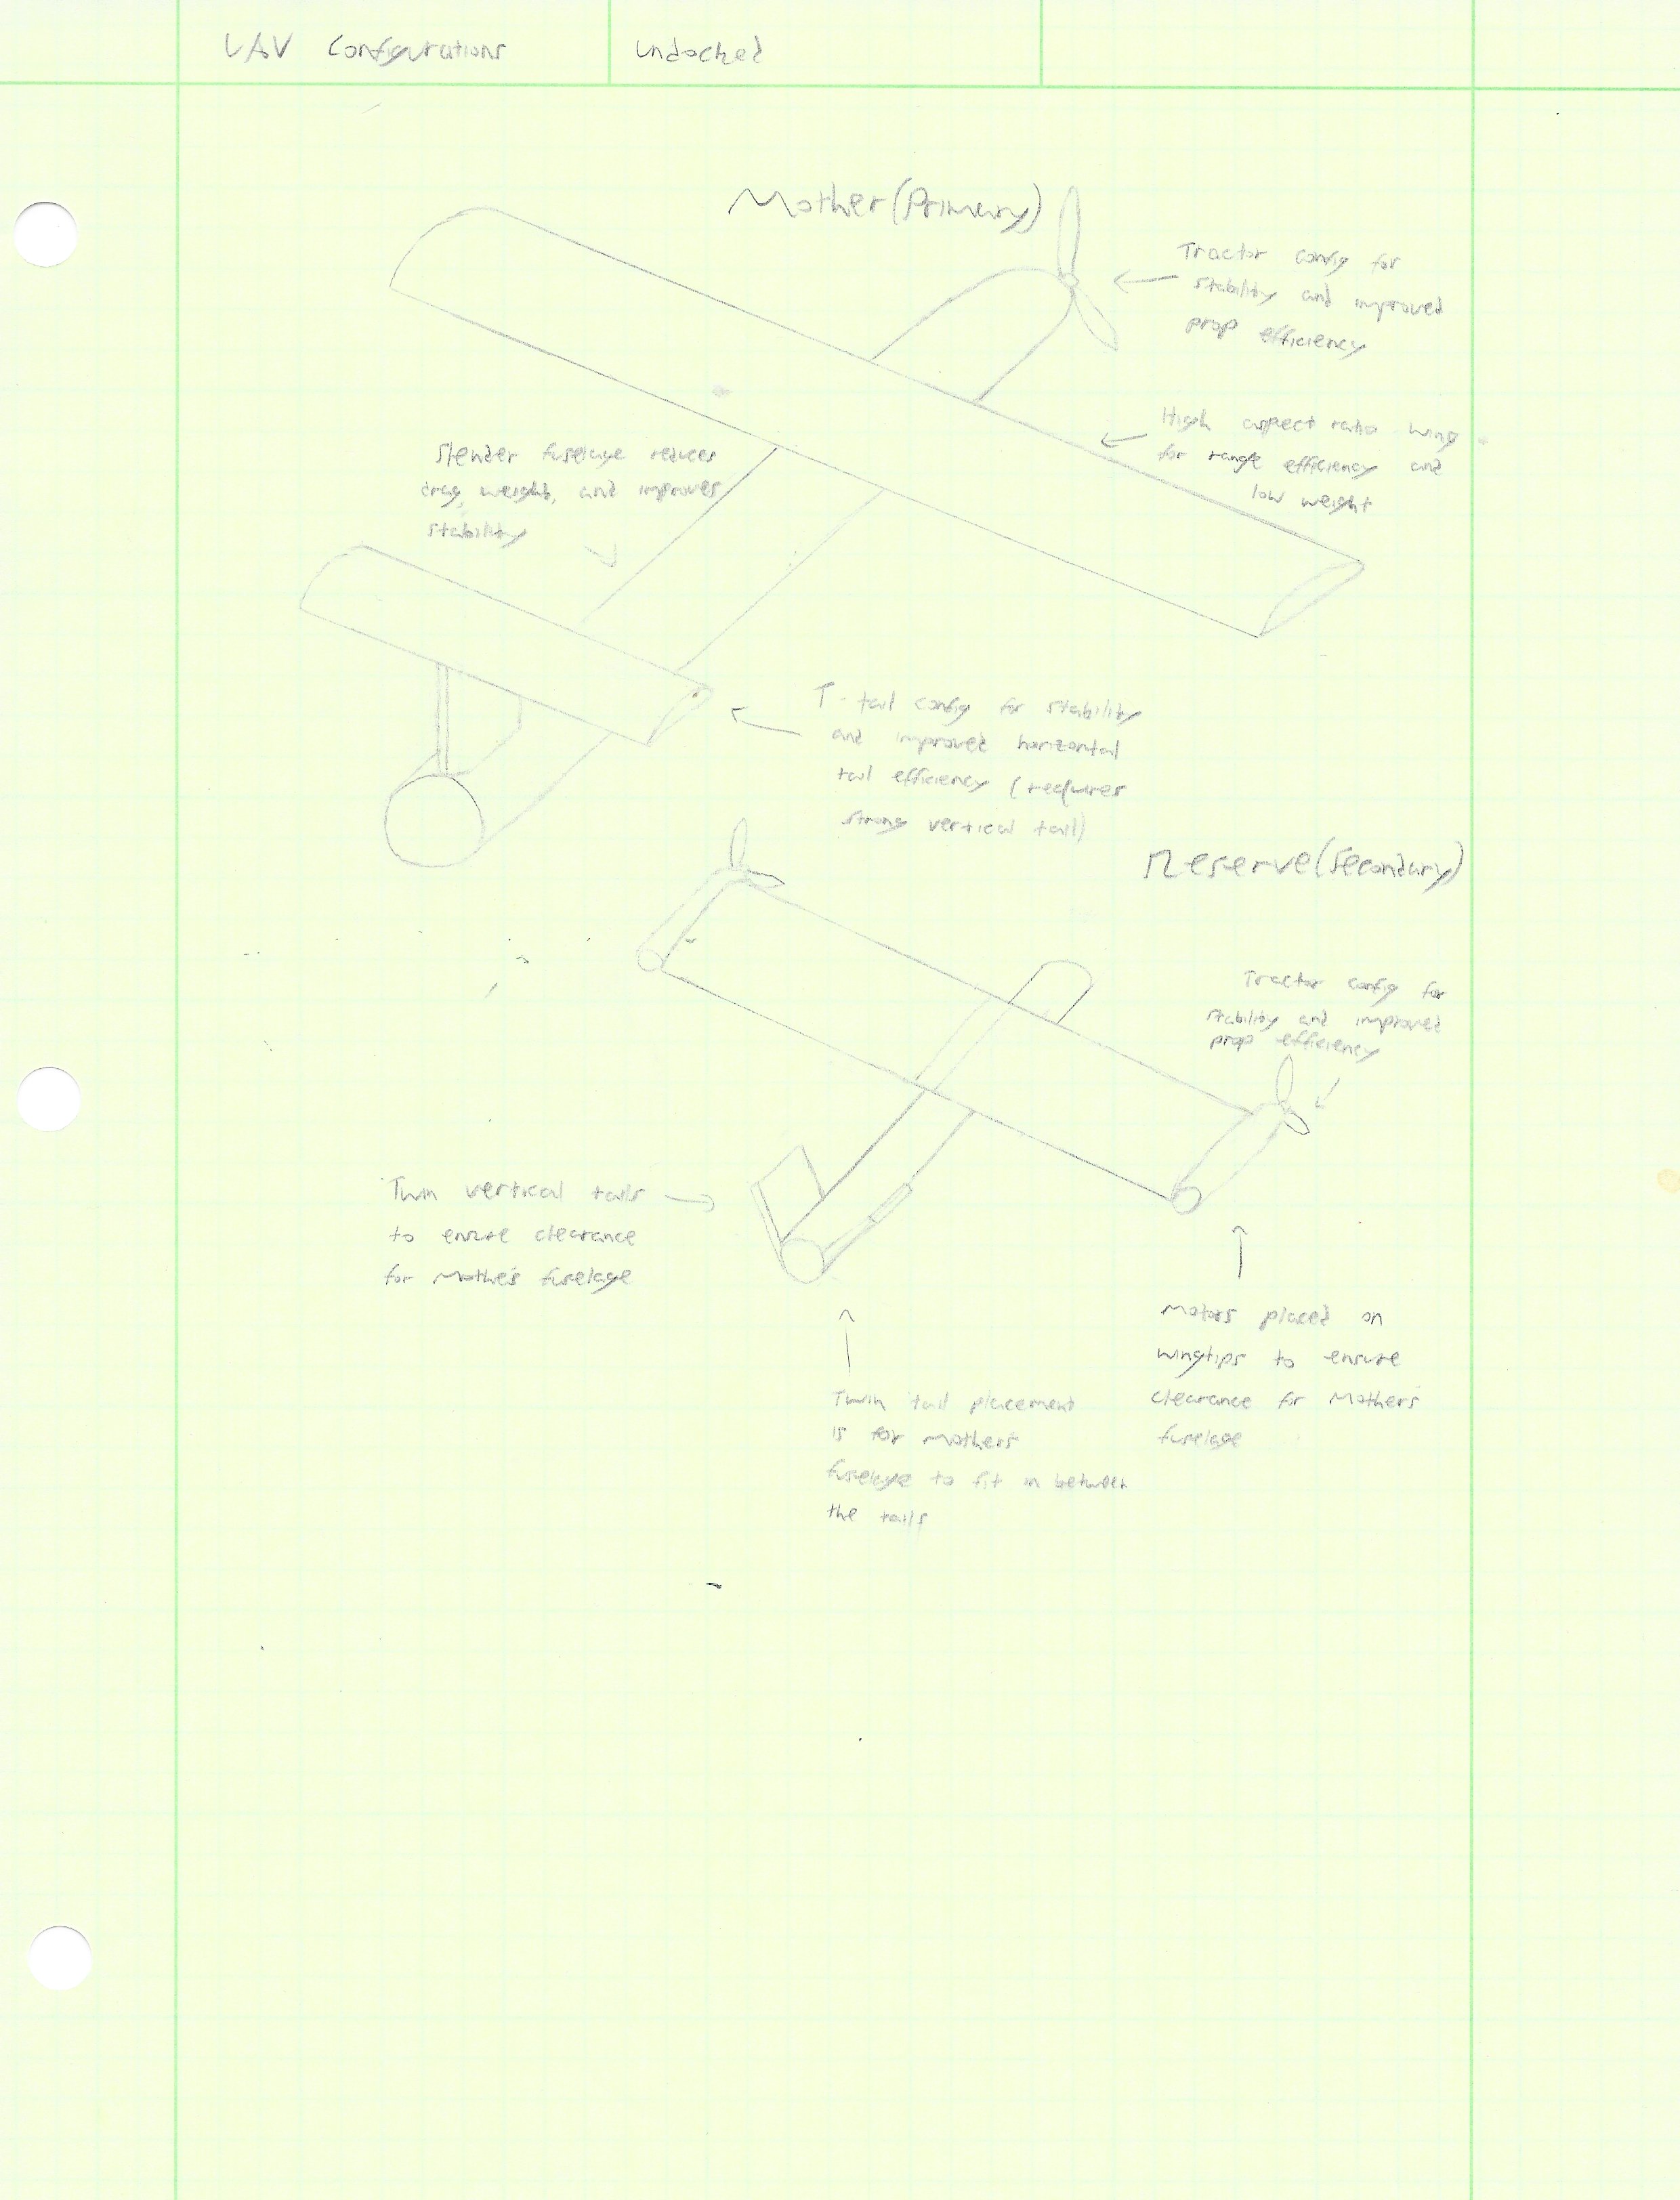 UAV Configurations
Undocked
Mother (Primary)
Tractor config for
stability and improved
prop efficiency
High aspect ratio wing
for range efficiency and
low weight
Slender fuselage reduces
drag, weight, and improves
stability
T-tail config for stability
and improved horizontal
tail efficiency (requires
strong vertical tail)
Reserve (Secondary)
Tractor config for
stability and improved
prop efficiency
Twin vertical tails
to ensure clearance
for Mother's fuselage
Motors placed on
wingtips to ensure
clearance for Mothers
fuselage
Twin tail placement
is for mothers
fuselage to fit in between
the tails